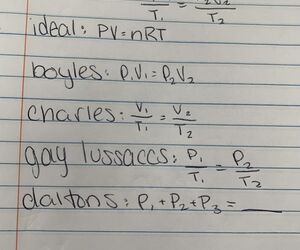 T₁ = P₂V₂/T₂
ideal: PV=nRT
boyles: P₁V₁=P₂V₂
charles: V₁/T₁ = V₂/T₂
gay lussaccs: P₁/T₁ = P₂/T₂
daltons: P₁+P₂+P₃= ___